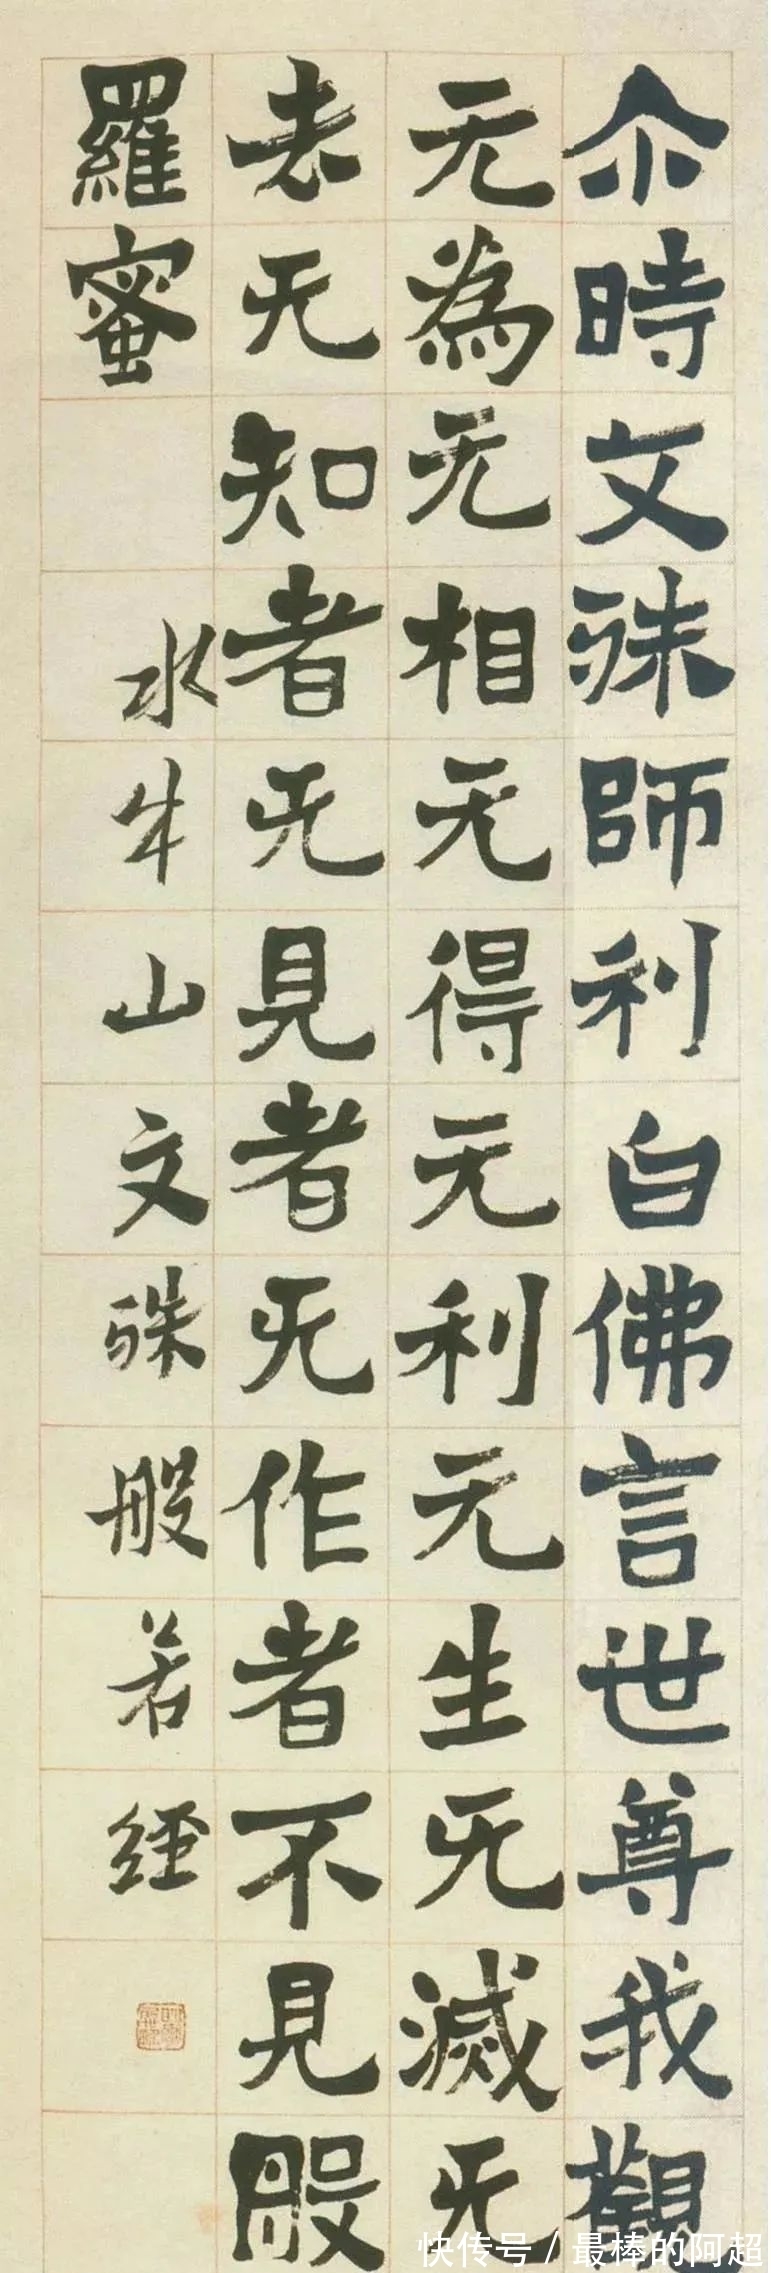 尒時文殊師利白佛言世尊我觀
无為无相无得无利无生无滅无
去无知者无見者无作者不見般
羅蜜
水牛山文殊般若經
快传号 / 最棒的阿超